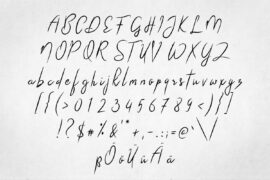 ABCDEFGHIJKLM
NOPQRSTUVWXYZ
abcdefghijklmnopqrstuvwxyz
[{(>0123456789<)}]
!?$#%&'*+,-.:;=@^\/
ßÖöÜüÄä